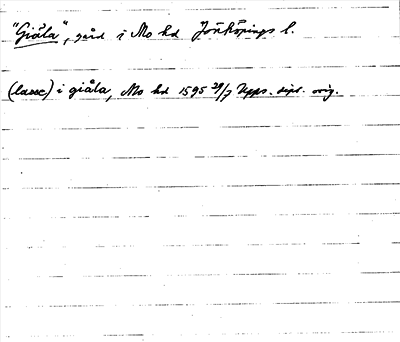 "Giåla", gård i Mo hd Jönköpings l.
(lasse) i giåla, Mo hd 1595 29/7 Upps. dipl. orig.